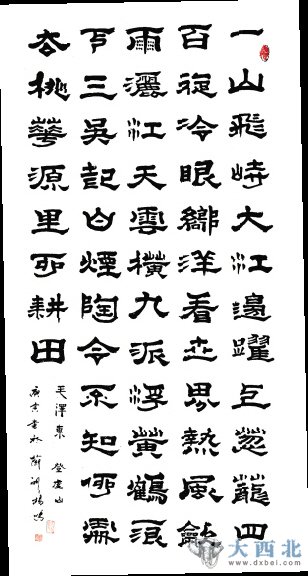 一山飛峙大江邊躍巨葱蘢四
百旋冷眼嚮洋看世界熱風龡
雨灑江天雲橫九派浮黄鶴浪
下三吳起白煙陶令不知何處
去桃華源里可耕田
毛澤東 登廬山
庚寅書於蘭州楊
大西北
www.dxbei.com